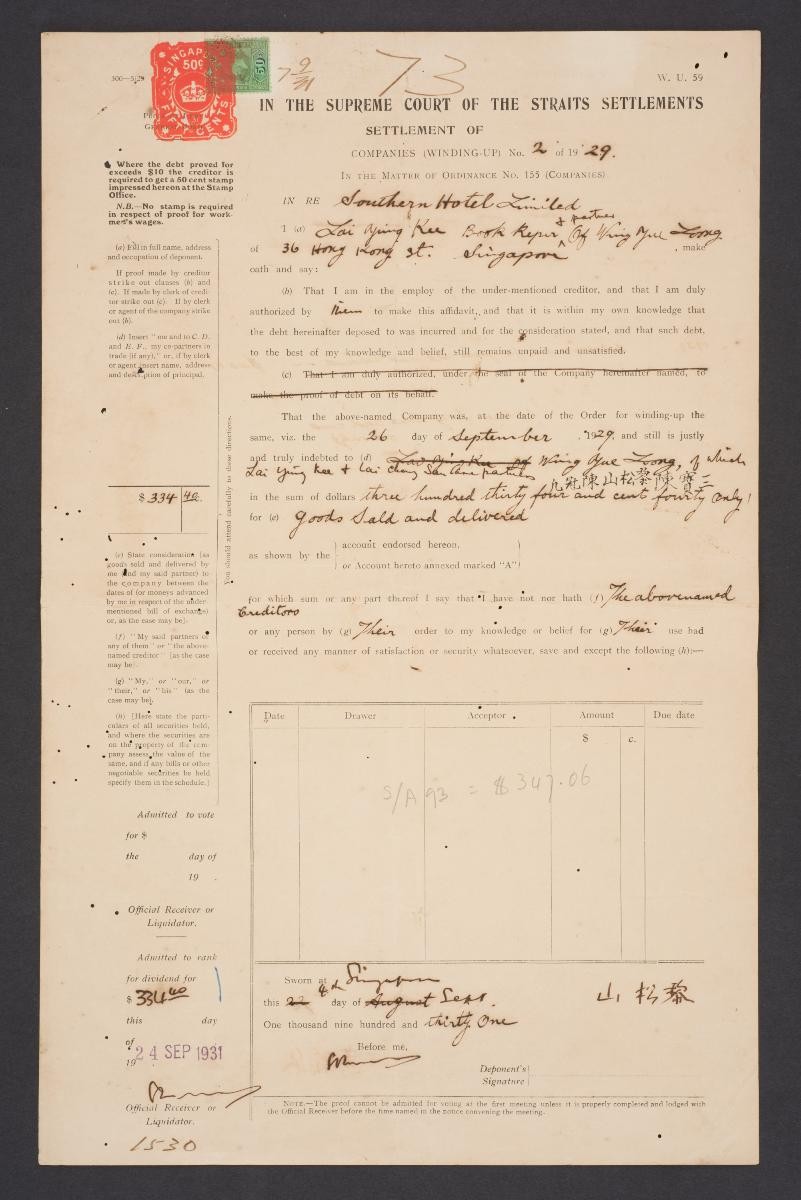 73
500—5/29
SINGAPORE
50c
FIFTY CENTS
W. U. 59
IN THE SUPREME COURT OF THE STRAITS SETTLEMENTS
SETTLEMENT OF
COMPANIES (WINDING-UP) No. 2 of 1929.
IN THE MATTER OF ORDINANCE No. 155 (COMPANIES)
IN RE Southern Hotel Limited
I (a) Lai Ying Kee Book Keper & partner Of Wing Yue Loong
of 36 Hong Kong St. Singapore, make
oath and say:
(b) That I am in the employ of the under-mentioned creditor, and that I am duly
authorized by them to make this affidavit, and that it is within my own knowledge that
the debt hereinafter deposed to was incurred and for the consideration stated, and that such debt,
to the best of my knowledge and belief, still remains unpaid and unsatisfied.
(c) That I am duly authorized, under the seal of the Company hereinafter named, to
make the proof of debt on its behalf.
That the above-named Company was, at the date of the Order for winding-up the
same, viz. the 26 day of September, 1929, and still is justly
and truly indebted to (d) Lai Ying Kee of Wing Yue Loong, of which
Lai Ying Kee & Lai
山松黎
in the sum of dollars three hundred thirty four and cent fourty only!
for (e) goods Sald and delivered
as shown by the
account endorsed hereon.
or Account hereto annexed marked "A"
for which sum or any part thereof I say that I have not nor hath (f) The abovenamed
Creditors
or any person by (g) Their order to my knowledge or belief for (g) Their use had
or received any manner of satisfaction or security whatsoever, save and except the following (h):—
Date Drawer Acceptor Amount Due date
$ c.
S/A 93 = $347.06
Sworn at Singapore
this 22 4th day of August Sept.
One thousand nine hundred and thirty One
Before me,
山松黎
Deponent's
Signature
NOTE.—The proof cannot be admitted for voting at the first meeting unless it is properly completed and lodged with
the Official Receiver before the time named in the notice convening the meeting.
Where the debt proved for
exceeds $10 the creditor is
required to get a 50 cent stamp
impressed hereon at the Stamp
Office.
N.B.—No stamp is required
in respect of proof for work-
men's wages.
(a) Fill in full name, address
and occupation of deponent.
If proof made by creditor
strike out clauses (b) and
(c). If made by clerk of credi-
tor strike out (c). If by clerk
or agent of the company strike
out (b).
(d) Insert "me and to C. D.
and E. F., my co-partners in
trade (if any)," or, if by clerk
or agent insert name, address
and description of principal.
You should attend carefully to these directions.
$ 334 40
(e) State consideration [as
goods sold and delivered by
me (and my said partner) to
the company between the
dates of (or moneys advanced
by me in respect of the under-
mentioned bill of exchange)
or, as the case may be].
(f) "My said partners or
any of them" or "the above-
named creditor" [as the case
may be].
(g) "My," or "our," or
"their," or "his" (as the
case may be).
(h) [Here state the parti-
culars of all securities held,
and where the securities are
on the property of the com-
pany assess the value of the
same, and if any bills or other
negotiable securities be held
specify them in the schedule.]
Admitted to vote
for $
the day of
19 .
Official Receiver or
Liquidator.
Admitted to rank
for dividend for
$ 334 40
this day
of
19
24 SEP 1931
Official Receiver or
Liquidator.
1530